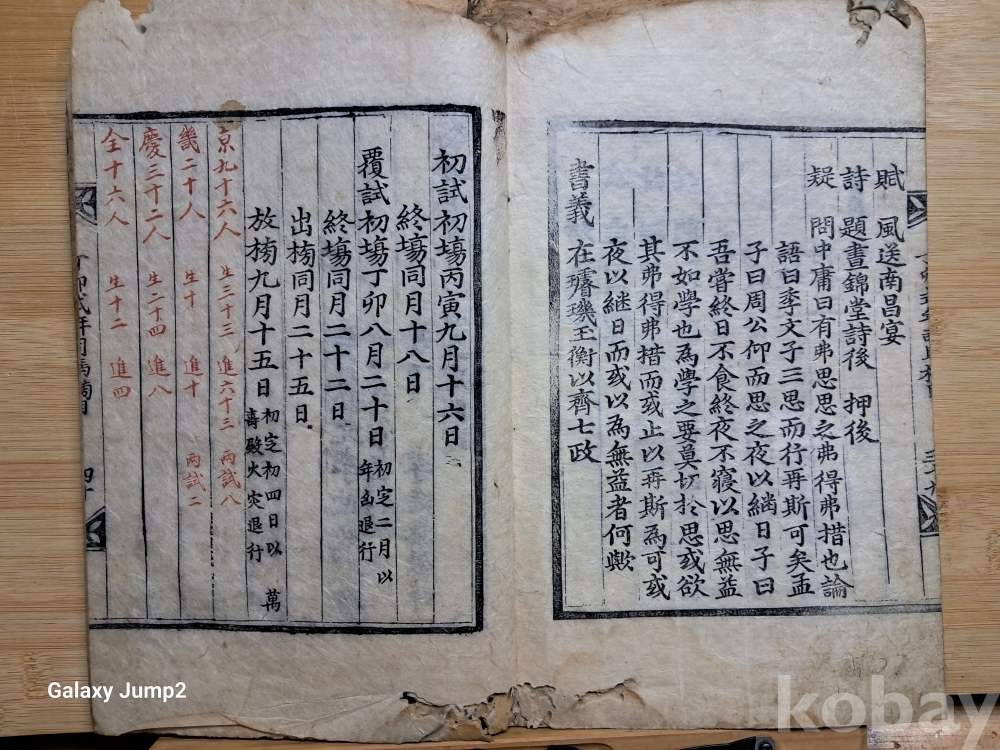 賦 風送南昌宴
詩 題晝錦堂詩後 押後
疑 問中庸曰有弗思思之弗得弗措也論
語曰季文子三思而行再斯可矣孟
子曰周公仰而思之夜以継日子曰
吾嘗終日不食終夜不寢以思無益
不如學也為學之要莫切於思或欲
其弗得弗措而或止以再斯為可或
夜以継日而或以為無益者何歟
書義 在璿璣玉衡以齊七政
初試初塲丙寅九月十六日
終塲同月十八日
覆試初塲丁卯八月二十日 初定二月以
年凶退行
終塲同月二十二日
出榜同月二十五日
放榜九月十五日 初定初四日以 萬
壽殿火灾退行
京九十六人 生三十三 進六十三 丙試八
畿二十人 生十 進十 丙試二
慶三十二人 生二十四 進八
全十六人 生十二 進四
丁卯式年司馬榜目 四十
Galaxy Jump2
kobay